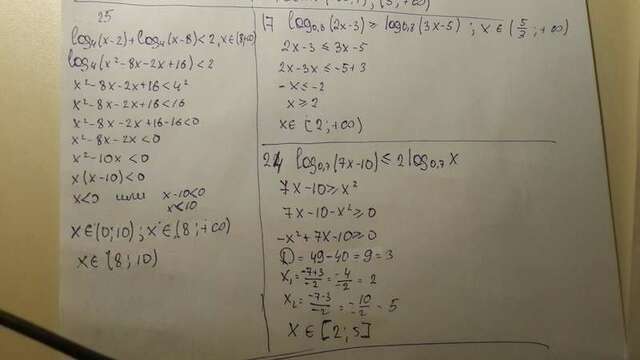 25
log₄(x-2)+log₄(x-8)<2, x∈(8;+∞)
log₄(x²-8x-2x+16)<2
x²-8x-2x+16<4²
x²-8x-2x+16<16
x²-8x-2x+16-16<0
x²-8x-2x<0
x²-10x<0
x(x-10)<0
x<0 или x-10<0
x<10
x∈(0;10); x∈(8;+∞)
x∈(8;10)
17 log₀,₈(2x-3)≥log₀,₈(3x-5); x∈(5/3;+∞)
2x-3≤3x-5
2x-3x≤-5+3
-x≤-2
x≥2
x∈[2;+∞)
24 log₀,₇(7x-10)≤2log₀,₇x
7x-10≥x²
7x-10-x²≥0
-x²+7x-10≥0
D=49-40=9=3
x₁=(-7+3)/-2=-4/-2=2
x₂=(-7-3)/-2=-10/-2=5
x∈[2;5]